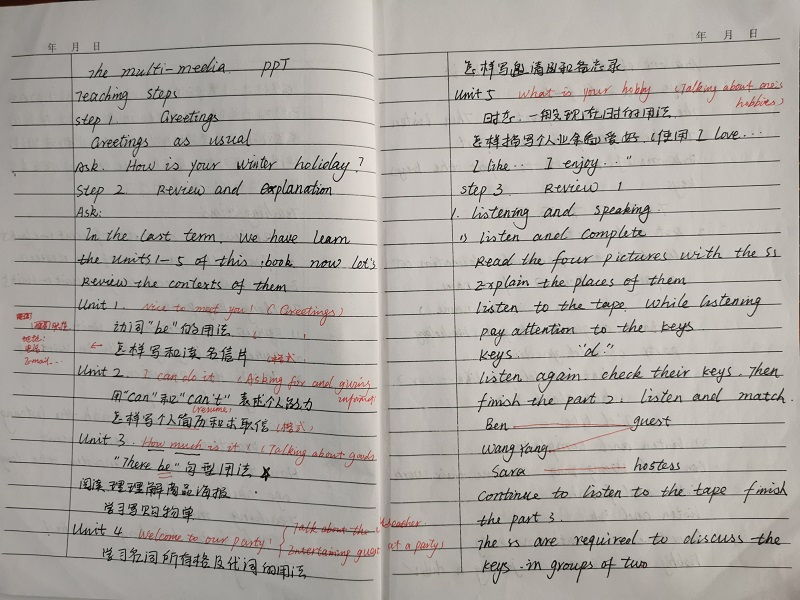 年 月 日
The multi-media PPT
Teaching steps
step 1 Greetings
Greetings as usual
Ask. How is your winter holiday?
Step 2 Review and Explanation
Ask:
In the last term. we have learn
the units 1-5 of this book now let's
Review the contexts of them
Unit 1. Nice to meet you! (Greetings)
动词"be"的用法
← 怎样写和读名信片 (格式)
地址:
电话:
E-mail...
Unit 2. I can do it (Asking for and giving
用"can"和"can't"表述个人能力
(resume)
怎样写个人简历和求职信 (格式)
Unit 3. How much is it! (Talking about goods
"There be"句型用法
阅读理理解商品海报
学习写购物单
Unit 4 Welcome to our party! Talk about the weather
Entertaining guest at a party)
学习名词所有格及代词的用法
年 月 日
怎样写邀请函和备忘录
Unit 5 What is your hobby (Talking about one's
hobbies)
时态. 一般现在时的用法
怎样描写个人业余爱好 (使用 I love...
I like... I enjoy..."
step 3. Review 1
1. listening and speaking
1) listen and complete
Read the four pictures with the ss
Explain the places of them
listen to the tape. While listening
pay attention to the keys
keys "d"
listen again. check their keys. Then
finish the part 2. listen and match.
Ben guest
Wang Yang
Sara hostess
Continue to listen to the tape finish
the part 3.
The ss are required to discuss the
keys in groups of two